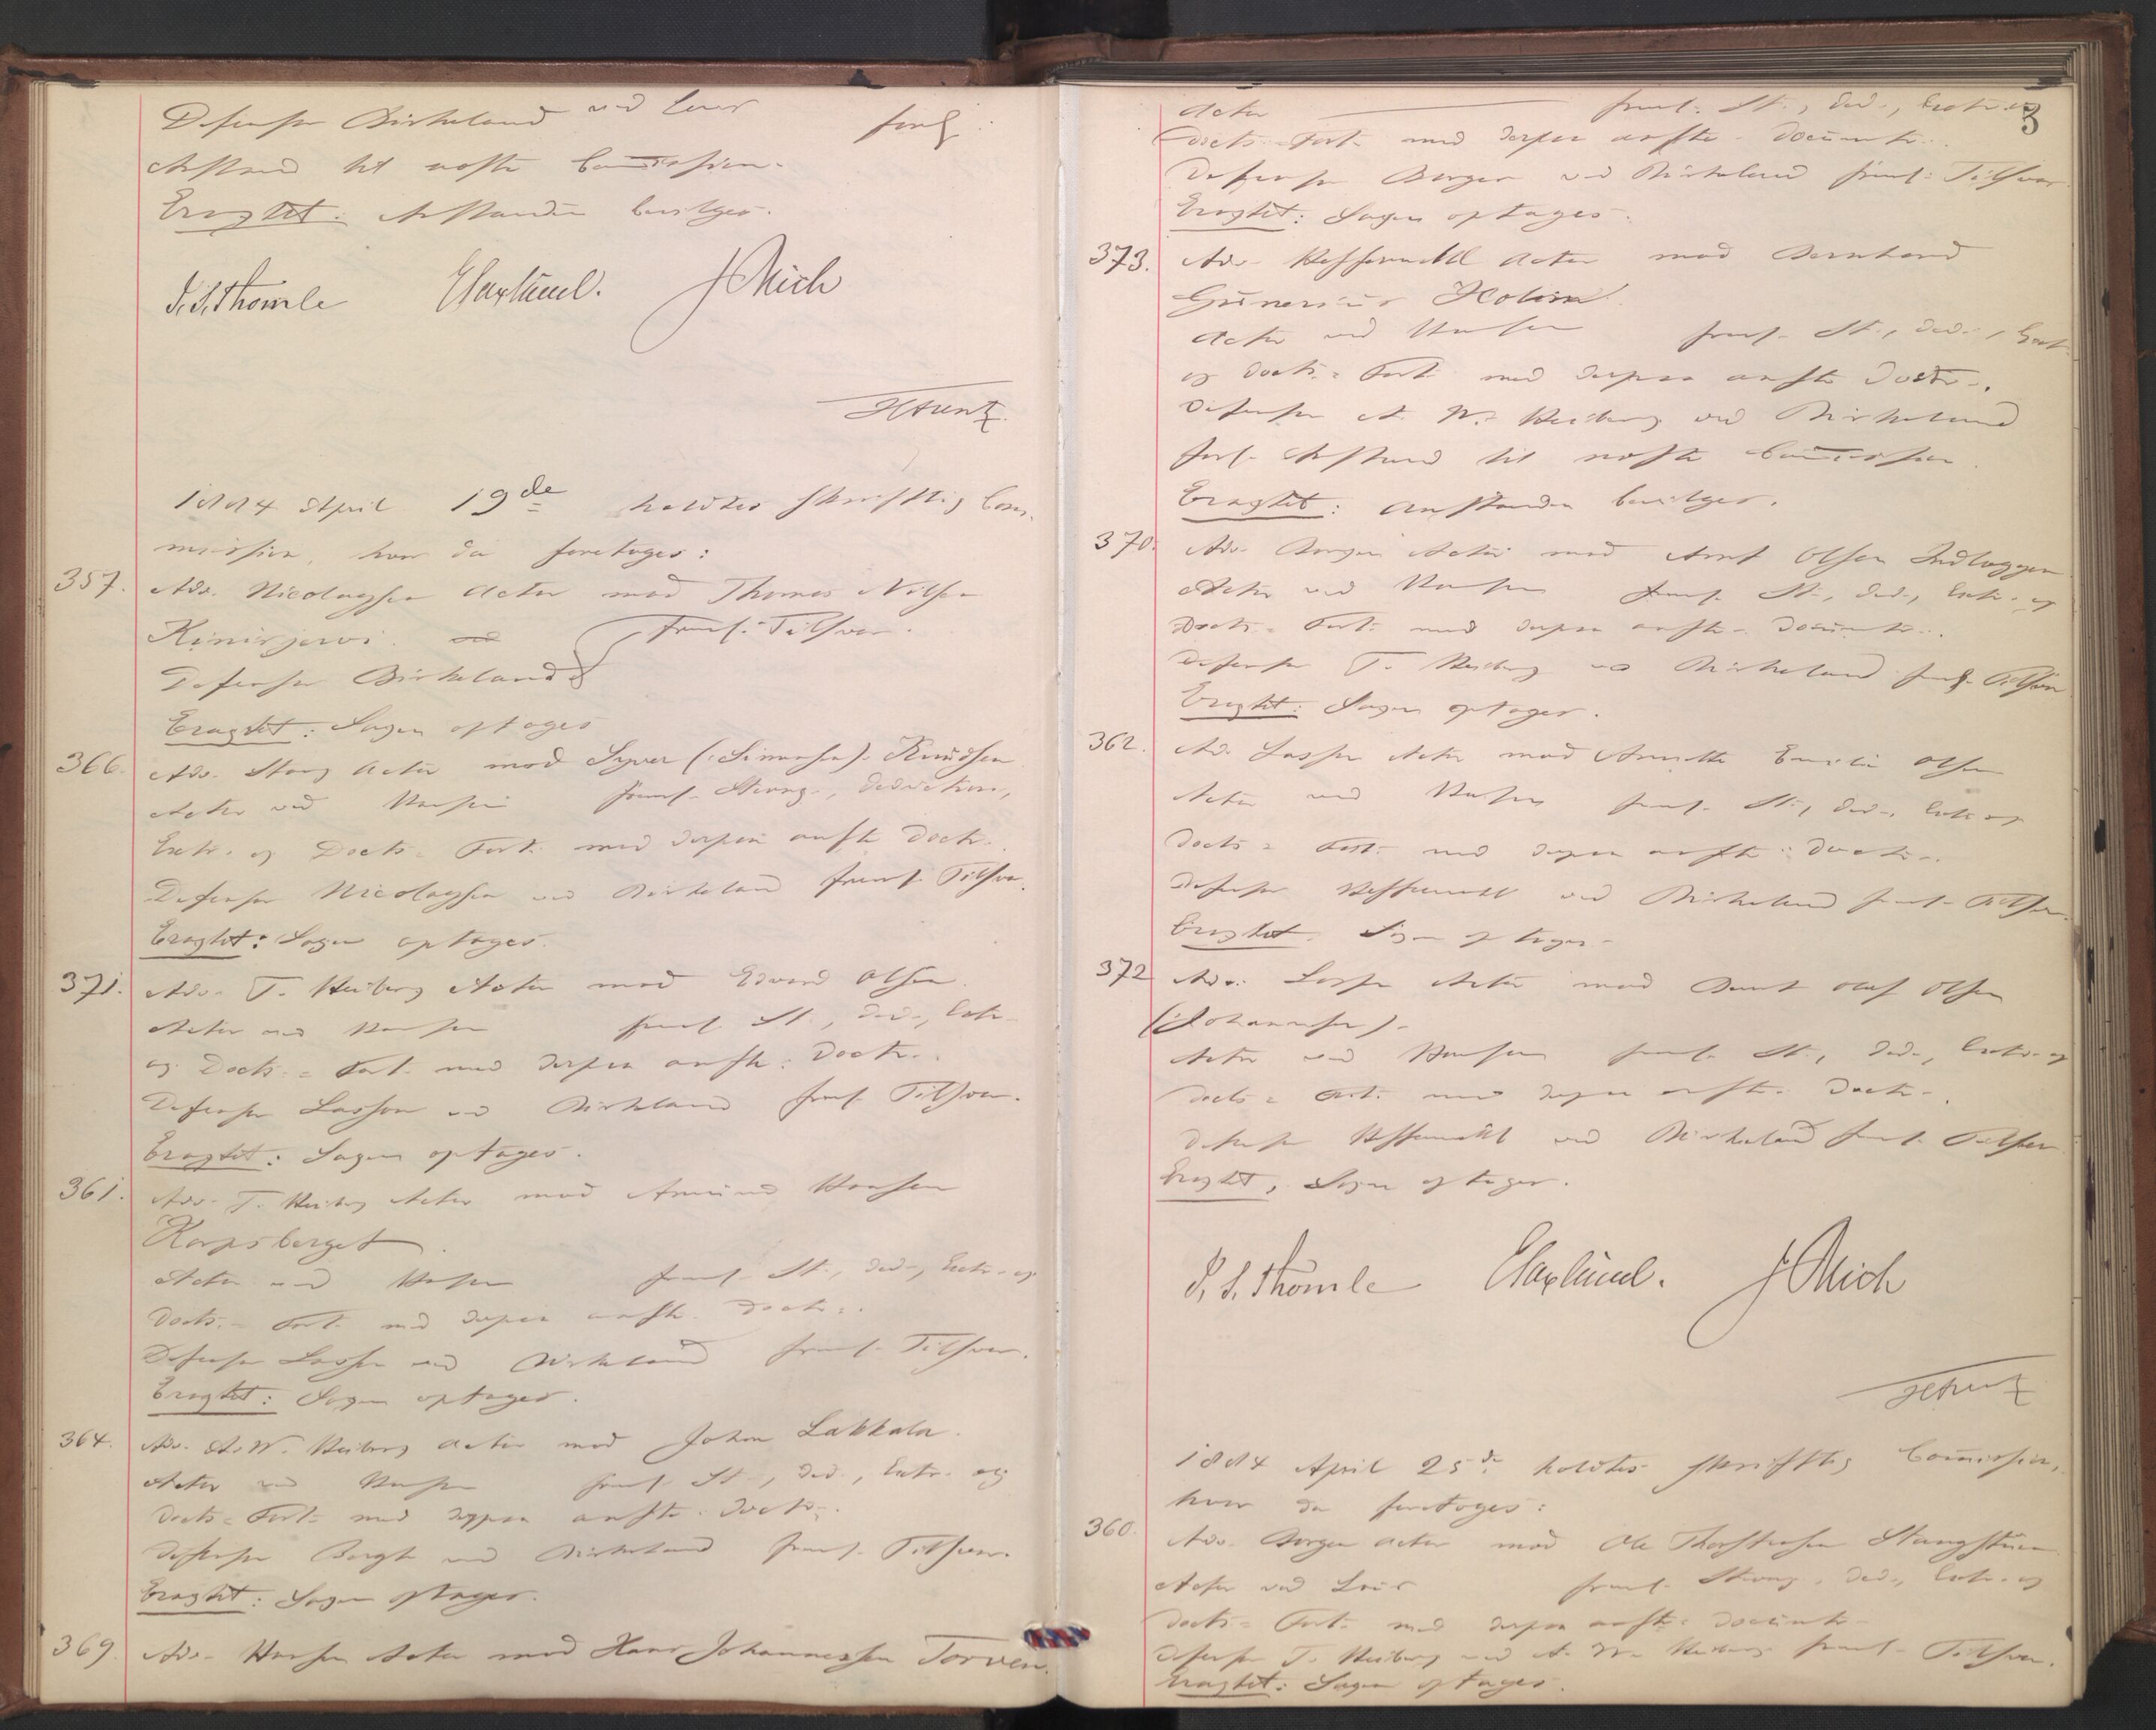 Defensor Birkeland ved Lous forl.
Anstand til næste Commission.
Eragtet: Anstanden bevilges.
I. S. Thomle E Haxlund. J Mich
1884 April 19de holdtes skriftlig Com-
mission, hvor da foretoges:
357. Adv. Nicolaysen Actor mod Thomas Nilsen
Kinisjervi. freml. Tilsvar.
Defensor Birkeland
Eragtet: Sagen optages
366. Adv. Stang Actor mod Syver (: Simensen) Knudsen
Actor ved Hansen freml. Stevng., Deduction,
Extr. og Docts.= Fort. med derpaa anfte Doctr.
Defensor Nicolaysen ved Birkeland freml. Tilsvar.
Eragtet: Sagen optages.
371. Adv. T. Heiberg Actor mod Edvard Olsen.
Actor ved Hansen freml. St., Ded., Extr.
og Docts.= Fort. med derpaa anfte. Doctr.
Defensor Lasson ved Birkeland freml. Tilsvar.
Eragtet: Sagen optages.
361. Adv. T. Heiberg Actor mod Amund Hansen
Korpsberget
Actor ved Hansen freml. St., Ded., Extr. og
Docts.= Fort. med derpaa anfte Doctr.
Defensor Lasson ved Birkeland freml. Tilsvar.
Eragtet: Sagen optages.
364. Adv. A. W. Heiberg Actor mod Johan Lakkala.
Actor ved Hansen freml. St., Ded., Extr. og
Docts.= Fort. med derpaa anfte. Doctr.
Defensor Bergh ved Birkeland freml. Tilsvar.
Eragtet: Sagen optages.
369. Adv. Hansen Actor mod Hans Johannessen Torven.
3
Actor freml. St., Ded., Extr. og
Docts.= Fort. med derpaa anfte. Documtr.
Defensor Borgen ved Birkeland freml. Tilsvar.
Eragtet: Sagen optages.
373. Adv. Actor mod Bernhard
Gunerius Holm.
Actor ved Hansen freml. St., Ded., Extr.
og Docts.= Fort. med derpaa anfte Doctr.
Defensor A. W. Heiberg ved Birkeland
forl. Anstand til næste Commission.
Eragtet: Anstanden bevilges.
370. Adv. Borgen Actor mod Arnt Olsen Indlaggen
Actor ved Hansen freml. St., Ded., Extr. og
Docts.= Fort. med derpaa anfte. Documtr.
Defensor T. Heiberg ved Birkeland freml. Tilsvar
Eragtet: Sagen optages.
362. Adv. Lasson Actor mod Annette Emilie Olsen
Actor ved Hansen freml. St., Ded., Extr. og
Docts.= Fort. med derpaa anfte. Doctr.
Defensor ved Birkeland freml. Tilsvar.
Eragtet: Sagen optages.
372 Adv. Lasson Actor mod Bernt Olaf Olsen
(: Johannesen).
Actor ved Hansen freml. St., Ded., Extr. og
Docts.= Fort. med derpaa anfte. Doctr.
Defensor ved Birkeland freml. Tilsvar
Eragtet: Sagen optages.
I. S. Thomle E Haxlund. J Mich
1884 April 25de holdtes skriftlig Commission,
hvor da foretoges:
360. Adv. Borgen Actor mod Ole Thorstensen Stangstuen
Actor ved Lous freml. Stevng., Ded., Extr. og
Docts.= Fort. med derpaa anfte. Documtr.
Defensor T. Heiberg ved A. W. Heiberg freml. Tilsvar.
Eragtet: Sagen optages.